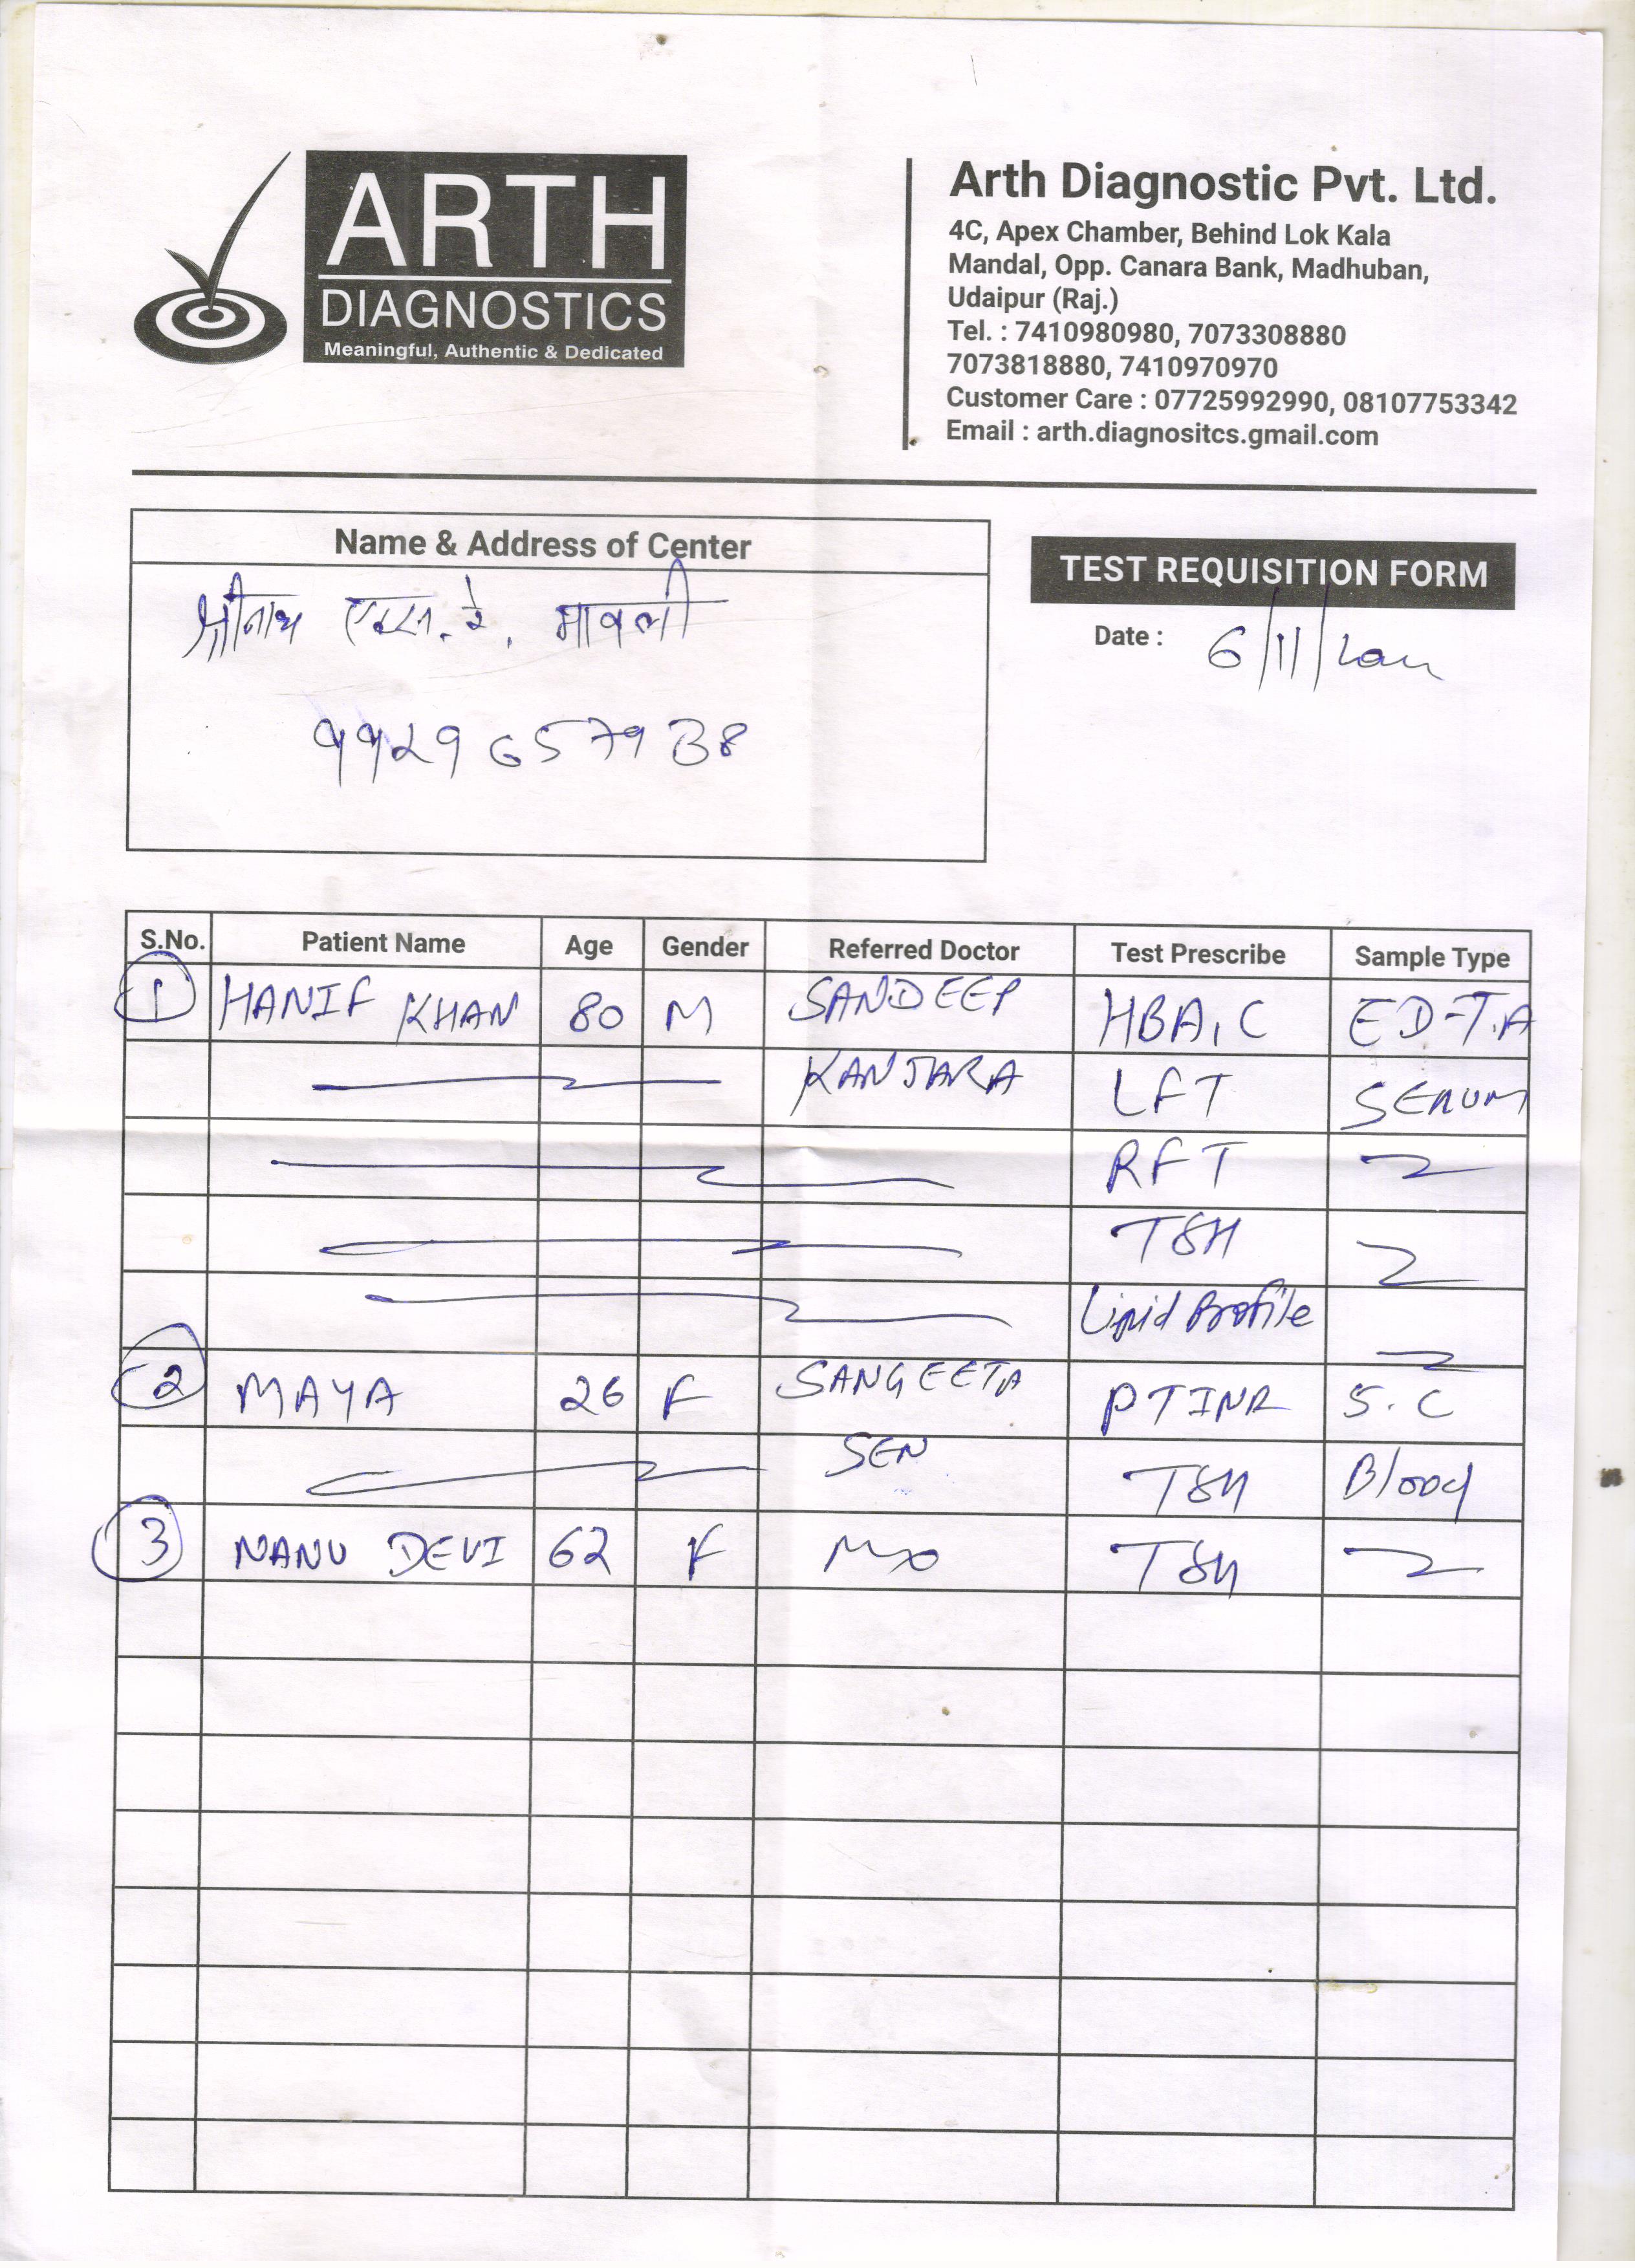 ARTH
DIAGNOSTICS
Meaningful, Authentic & Dedicated
Arth Diagnostic Pvt. Ltd.
4C, Apex Chamber, Behind Lok Kala
Mandal, Opp. Canara Bank, Madhuban,
Udaipur (Raj.)
Tel. : 7410980980, 7073308880
7073818880, 7410970970
Customer Care : 07725992990, 08107753342
Email : arth.diagnositcs.gmail.com
Name & Address of Center
श्रीनाथ एक्स. रे. मावली
9929657938
TEST REQUISITION FORM
Date : 6/11/
S.No. Patient Name Age Gender Referred Doctor Test Prescribe Sample Type
1 HANIF KHAN 80 M SANDEEP HBA1C ED-T.A
KANJARA LFT SERUM
RFT
TSH
Lipid Profile
2 MAYA 26 F SANGEETA PTINR S.C
SEN TSH Blood
3 NANU DEVI 62 F TSH